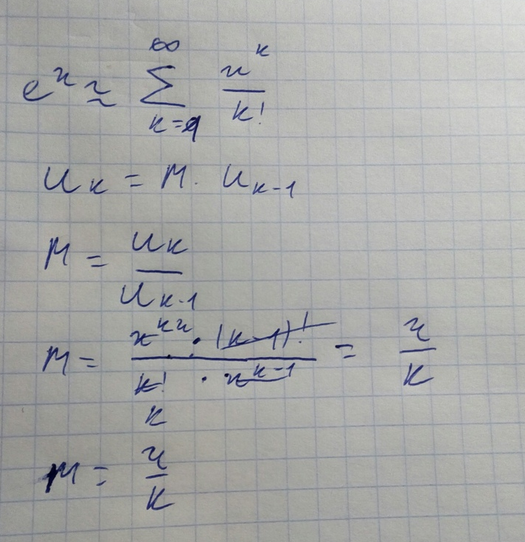 e^x ≈ ∑_{k=0}^{∞} x^k / k!
u_k = M · u_{k-1}
M = u_k / u_{k-1}
M = x^k · (k-1)! / k! · x^{k-1} = x / k
k
M = x / k